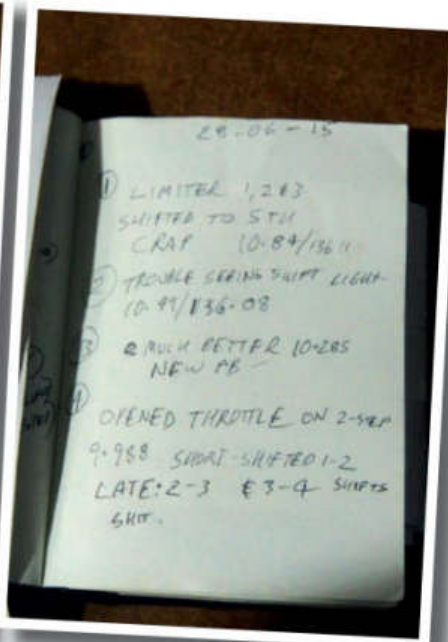 28-06-15
① LIMITER 1, 2 & 3
SHIFTED TO 5TH
CRAP 10.84/136
② TROUBLE SEEING SHIFT LIGHT
10.99/136.08
③ MUCH BETTER 10.285
NEW PB
④
OPENED THROTTLE ON 2-STEP
9.988 SHORT-SHIFTED 1-2
LATE: 2-3 & 3-4 SHIFTS
SHIT.